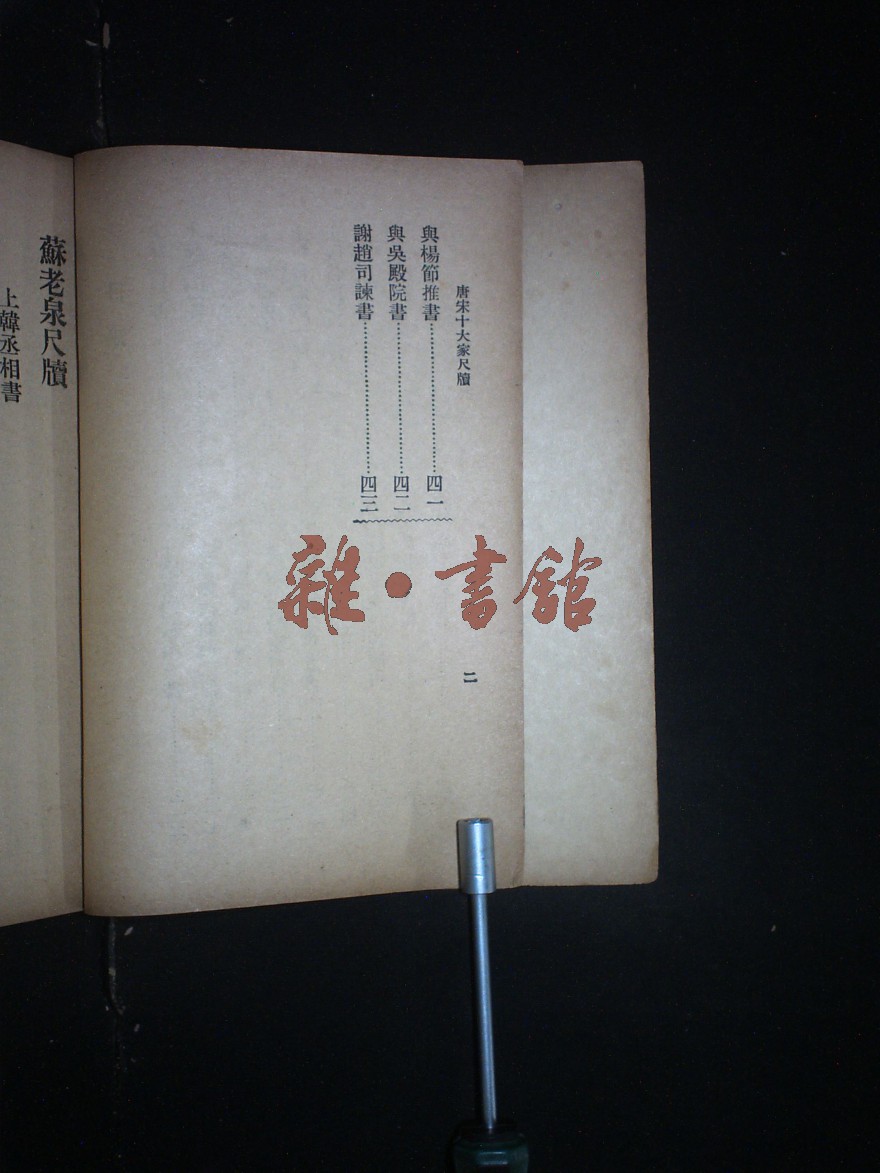 唐宋十大家尺牘
與楊節推書……四一
與吳殿院書……四二
謝趙司諫書……四三
二
蘇老泉尺牘
上韓丞相書
雜·書館